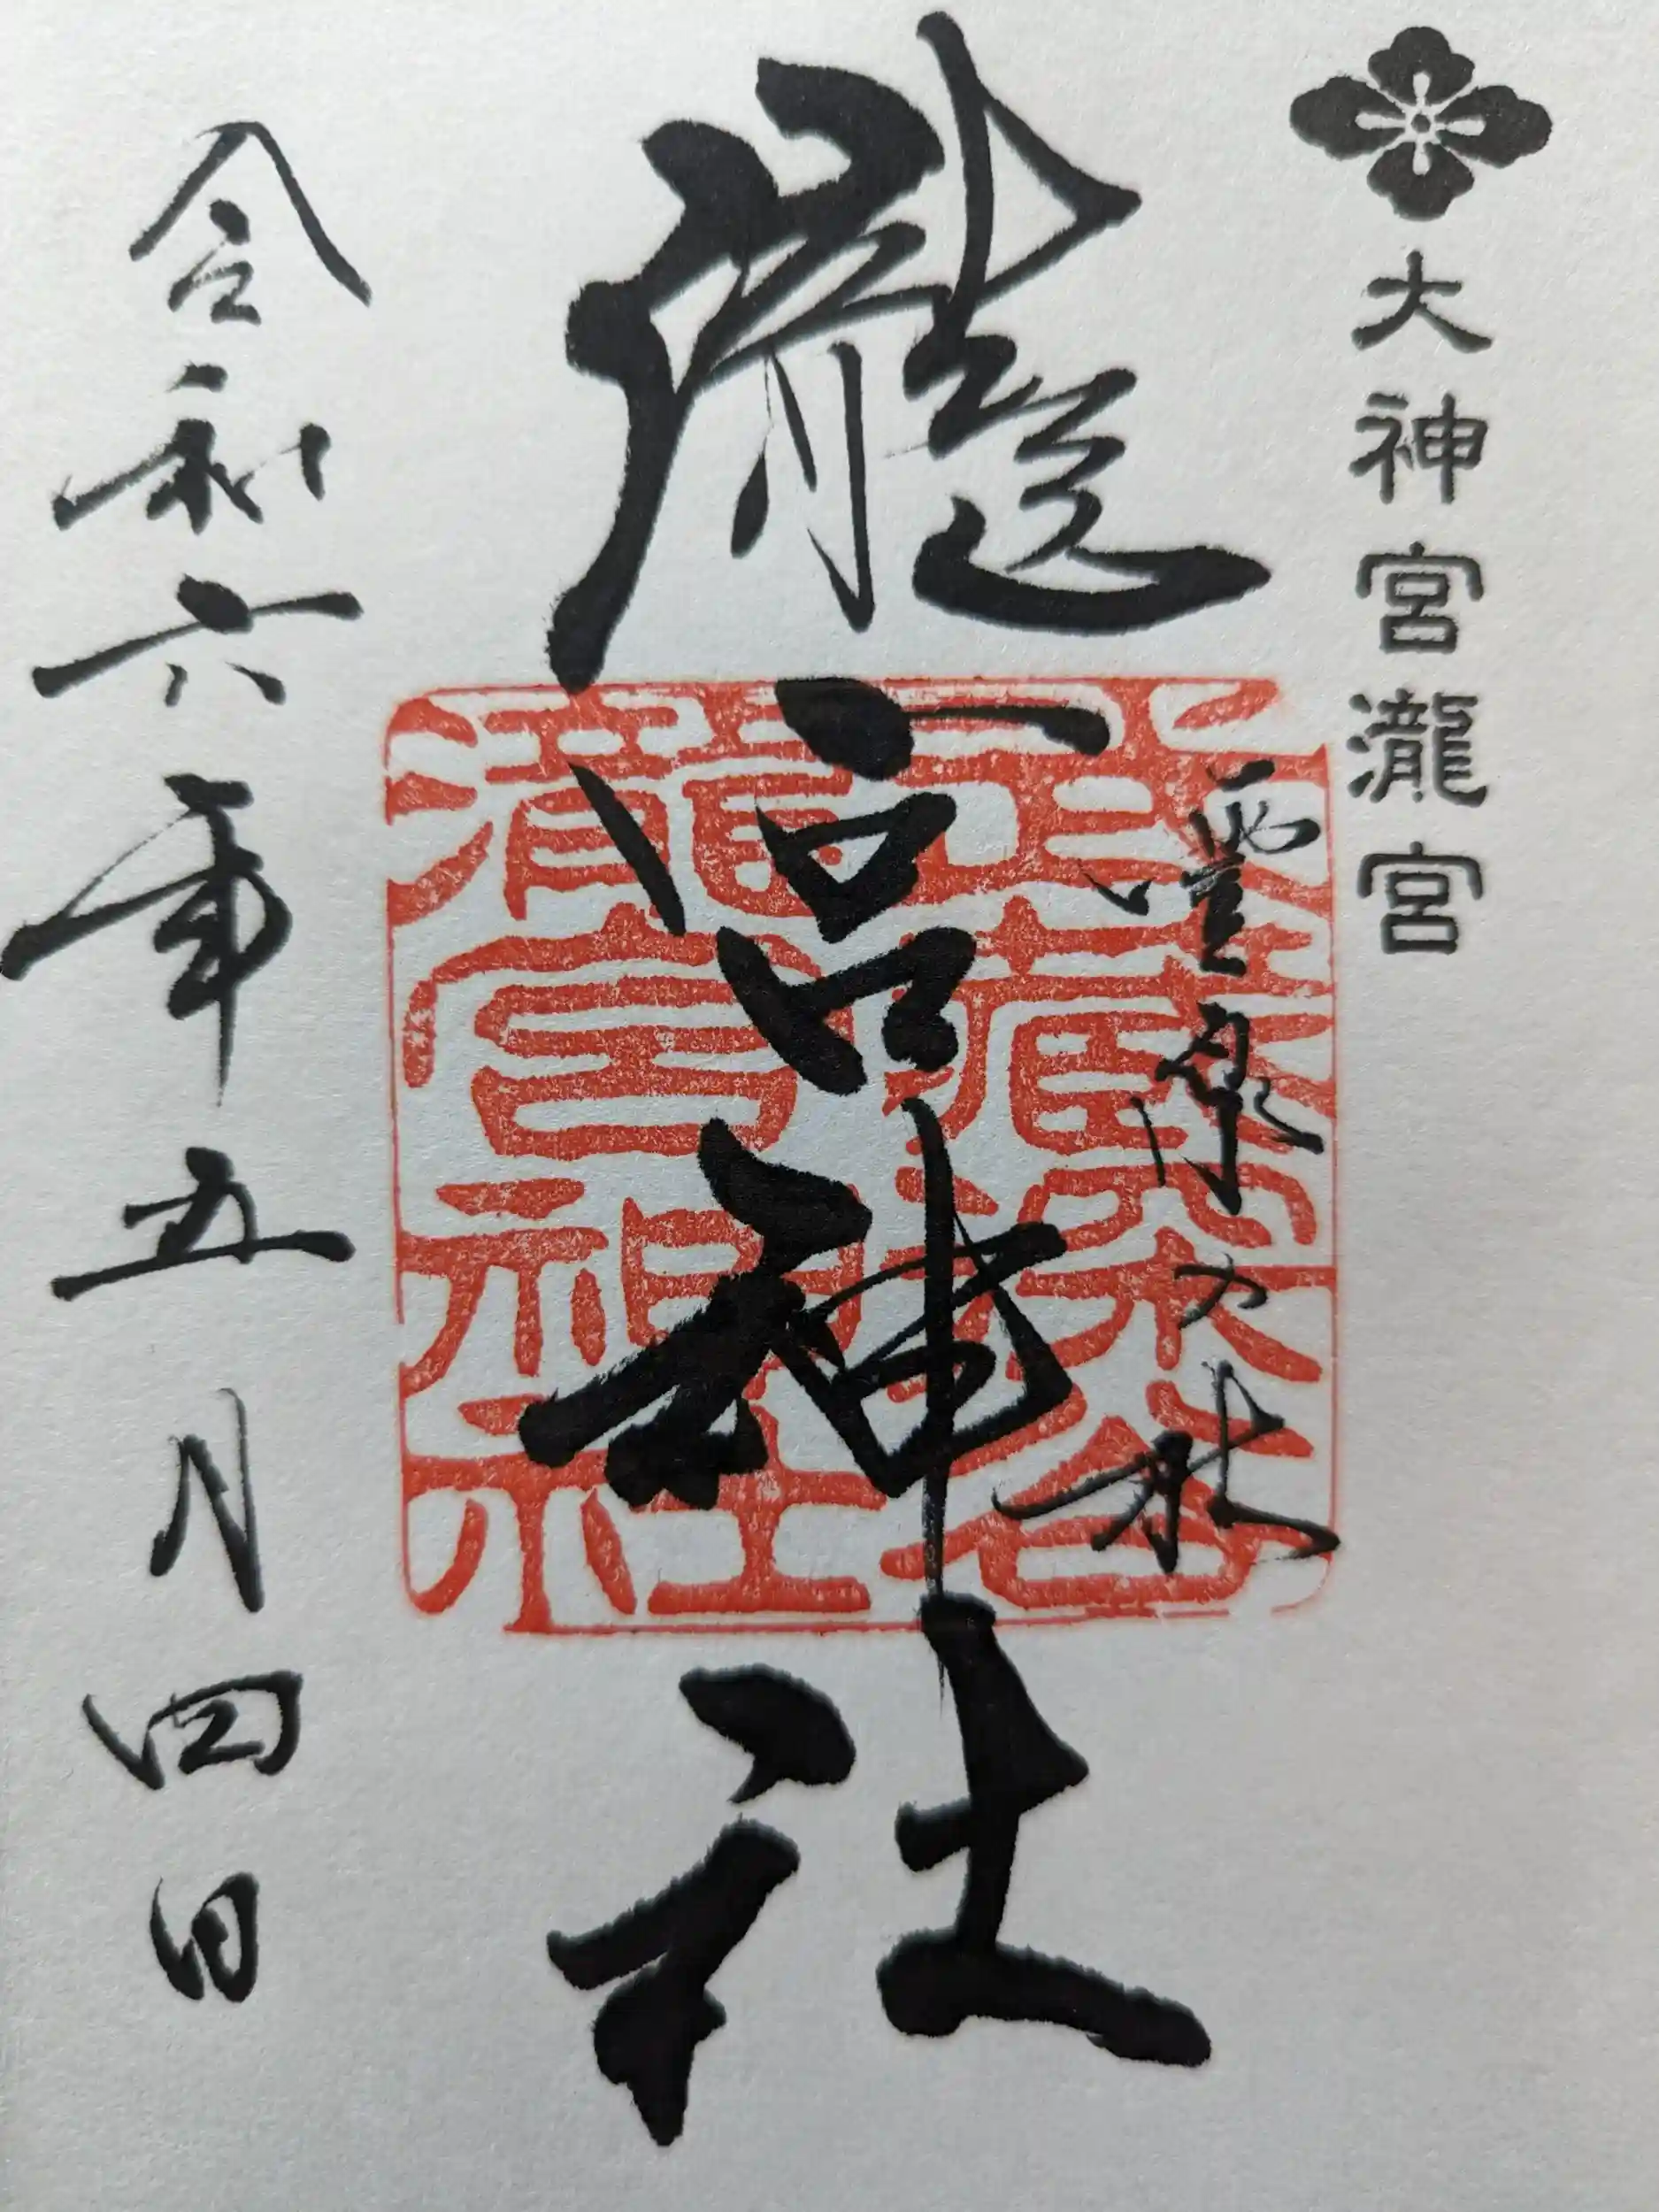 大神宮瀧宮
瀧宮神社
武蔵深谷
瀧宮神社
令和六年五月四日